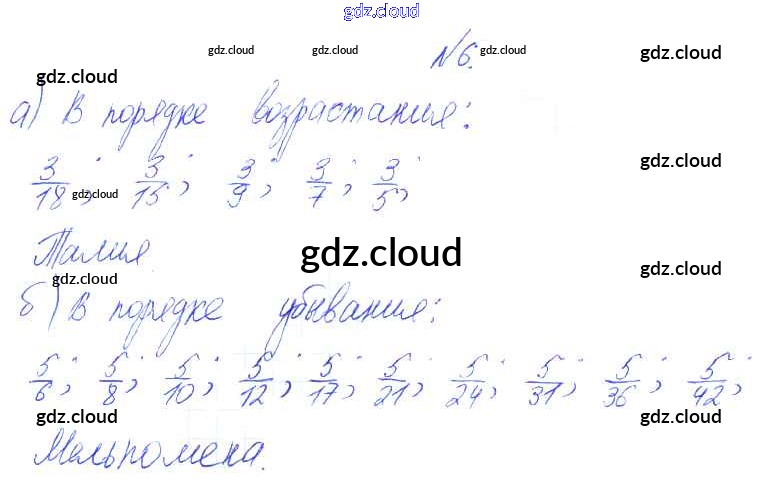 gdz.cloud
gdz.cloud gdz.cloud №6. gdz.cloud gdz.cloud
gdz.cloud
а) В порядке возрастания:
gdz.cloud
3/18; 3/15; 3/9; 3/7; 3/5;
gdz.cloud
Талия.
gdz.cloud
gdz.cloud
gdz.cloud
б) В порядке убывания:
5/6; 5/8; 5/10; 5/12; 5/17; 5/21; 5/24; 5/31; 5/36; 5/42;
gdz.cloud gdz.cloud gdz.cloud gdz.cloud
Мельпомена.